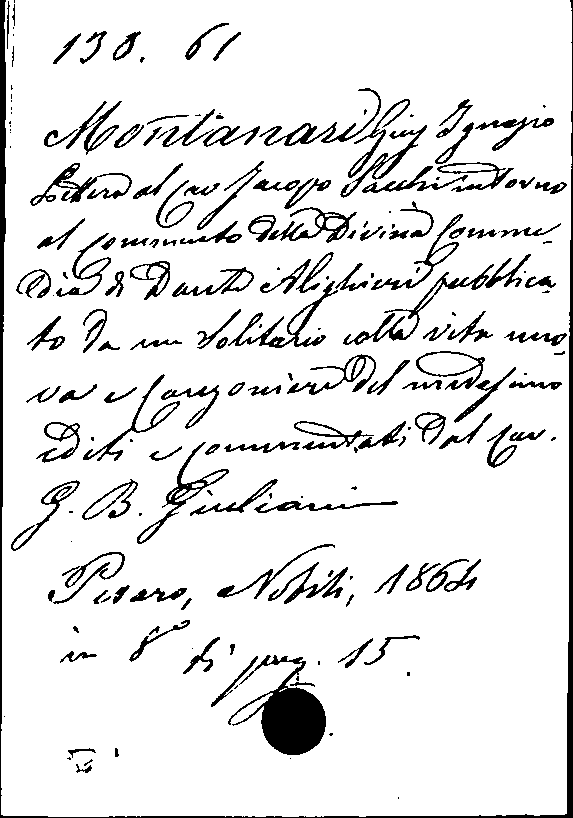 138. 61
Montanari Giu. Ignazio
Lettera al Cav Jacopo Sacchi intorno
al commento della Divina Comme-
dia di Dante Alighieri pubblica-
to da un Solitario colla vita nuo-
va e Canzoniere del medesimo
editi e commentati dal Cav.
G. B. Giuliani
Pesaro, Nobili, 1864
in 8º di pag. 15.